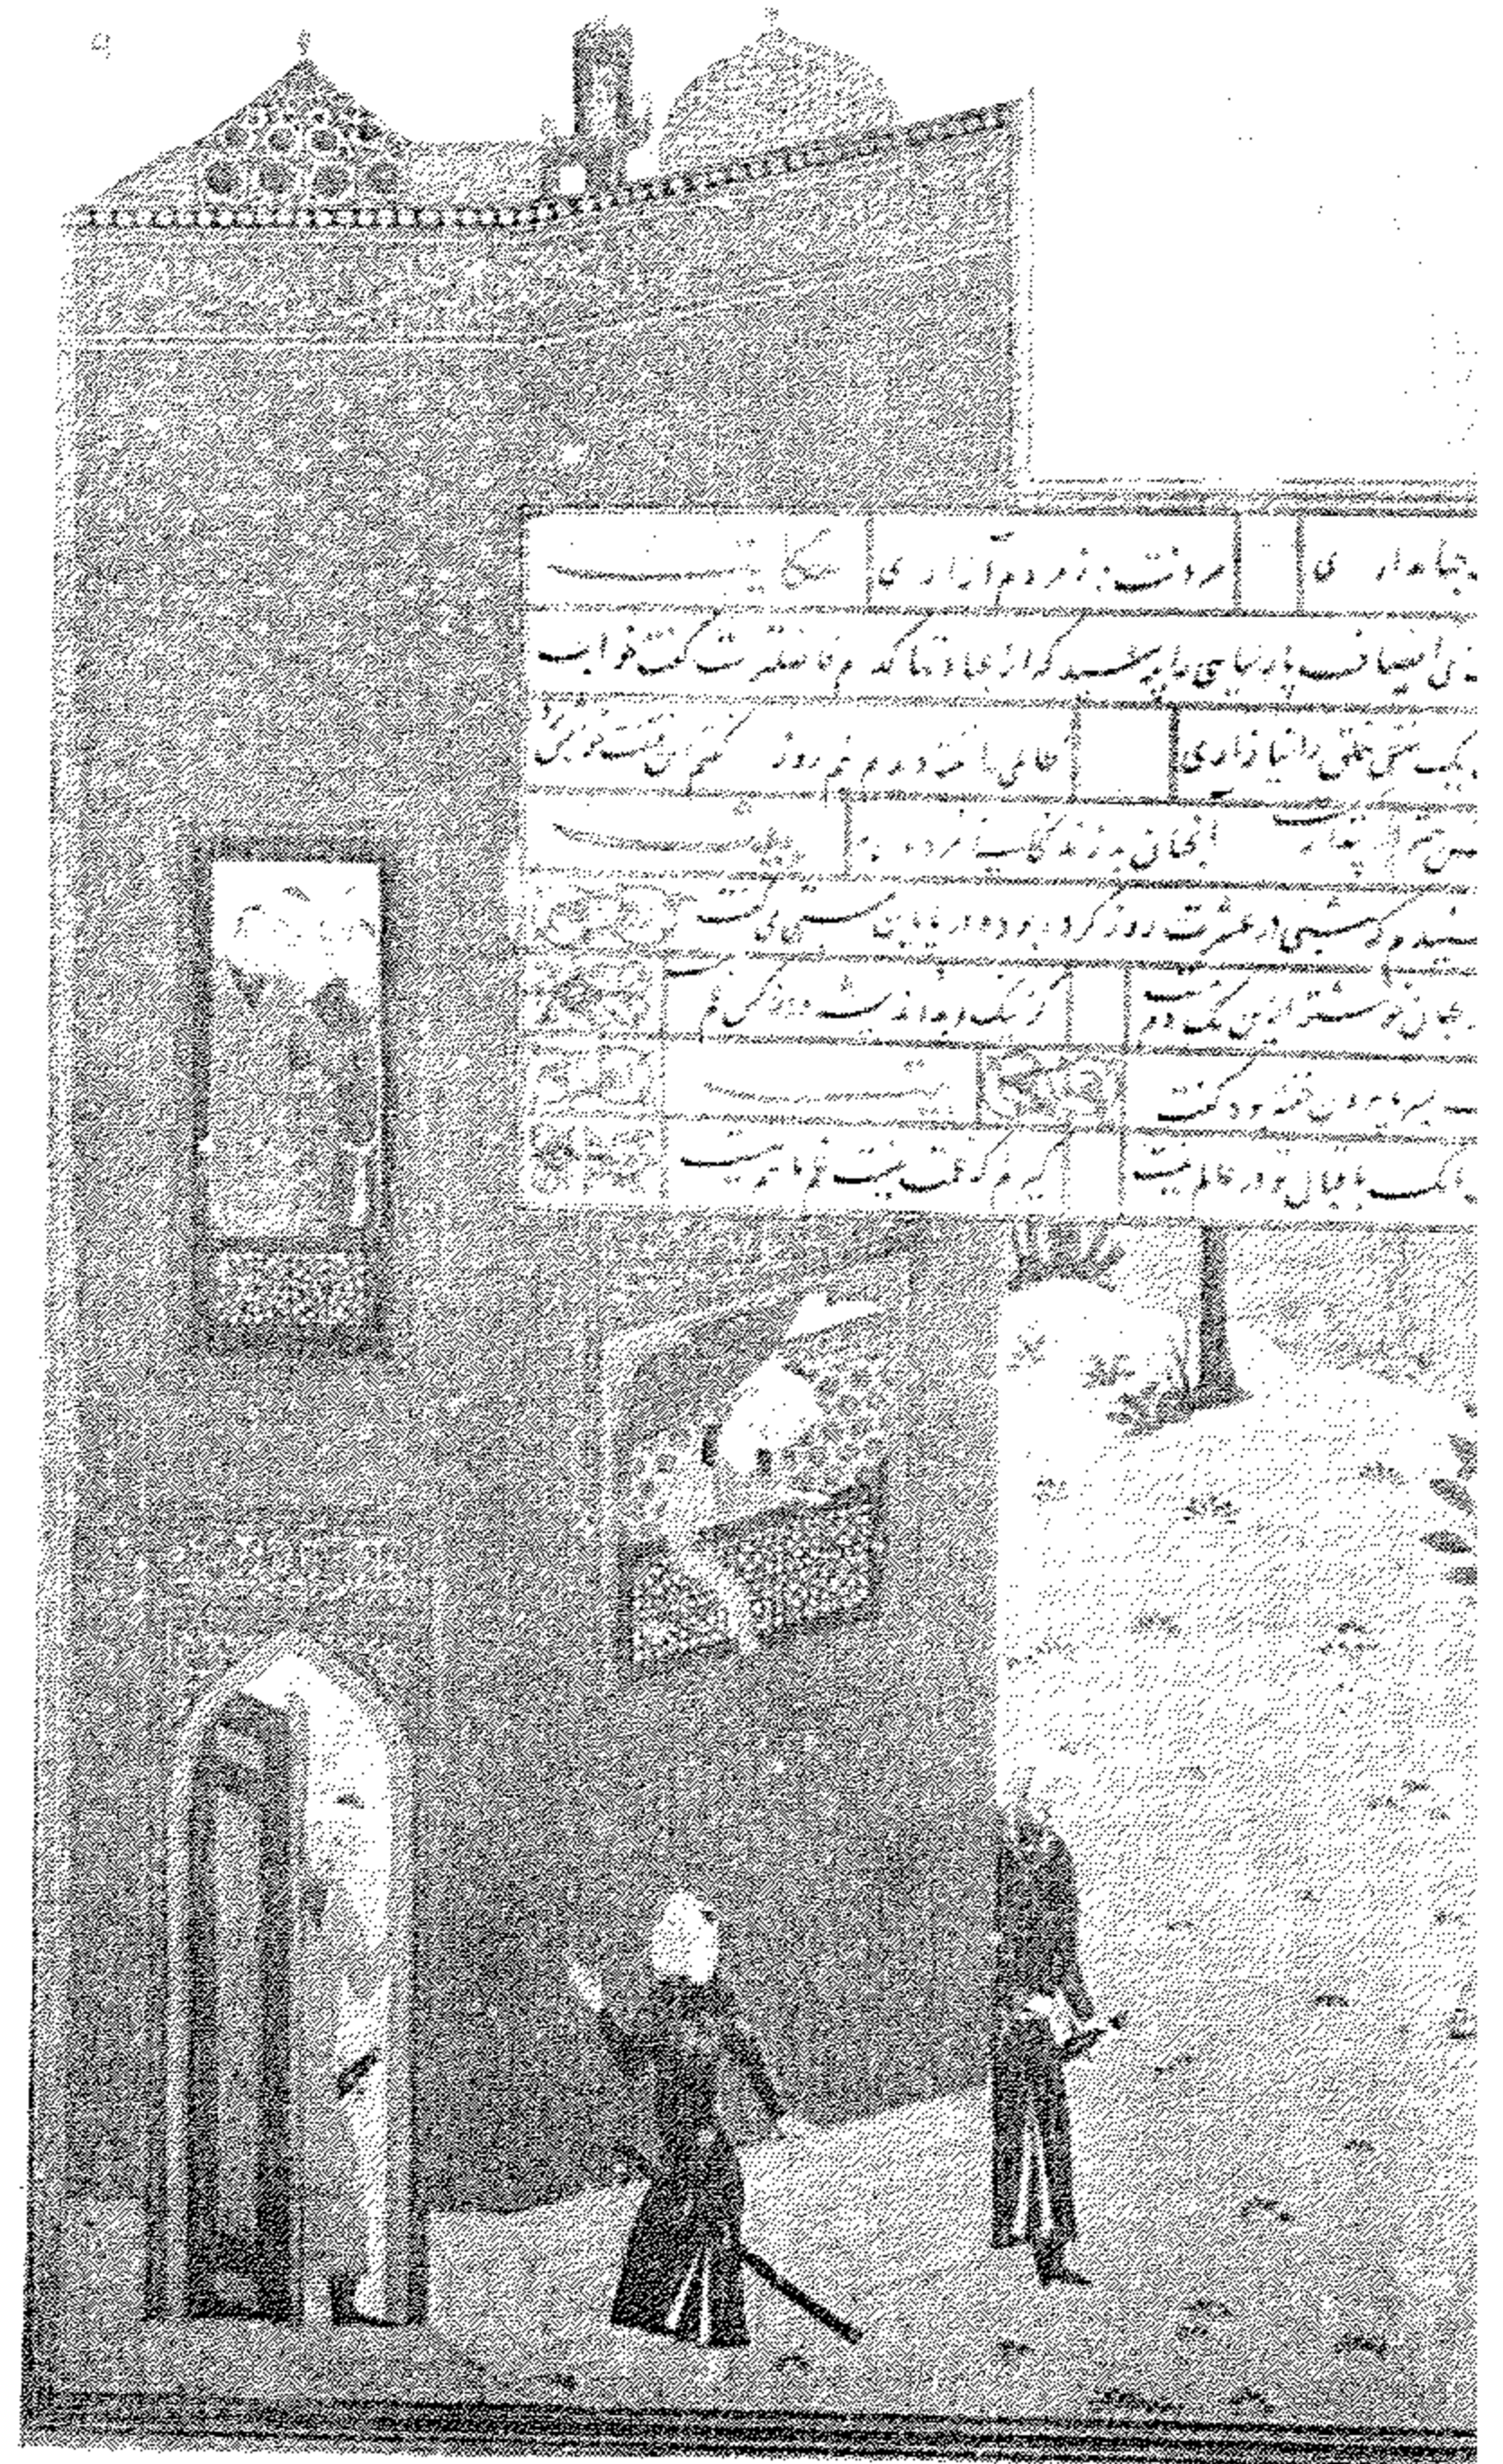 جهانداری مردنت به ز مردم آزاری حکایت
انصاف پارسایی را پرسید که از عبادتها کدام فاضلترست گفت خواب
یک نفس خلق را نیازاری ظالمی را خفته دیدم نیم روز گفتم این فتنه است خوابش برده
آنچنان بد زندگانی مرده به
شنیدم که شبی در عشرت روز کرده بود و در پایان مستی می گفت
بجهان خوشتر ازین یک دم نیست کز نیک و بد اندیشه و از کس غم
بسرما برون خفته بود گفت
آنک باقبال تو در عالم نیست گیرم که غمت نیست غم ما هم نیست